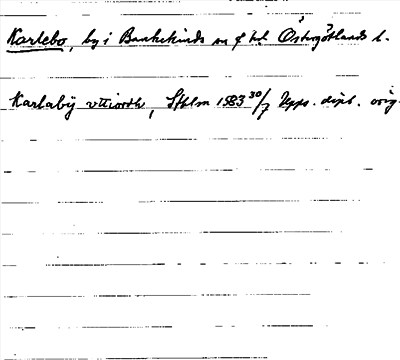 Karlebo, by i Bankekinds sn o hd Östergötlands l.
Karlabÿ vttiordh, Sthlm 1583 30/7 Upps. dipl. orig.